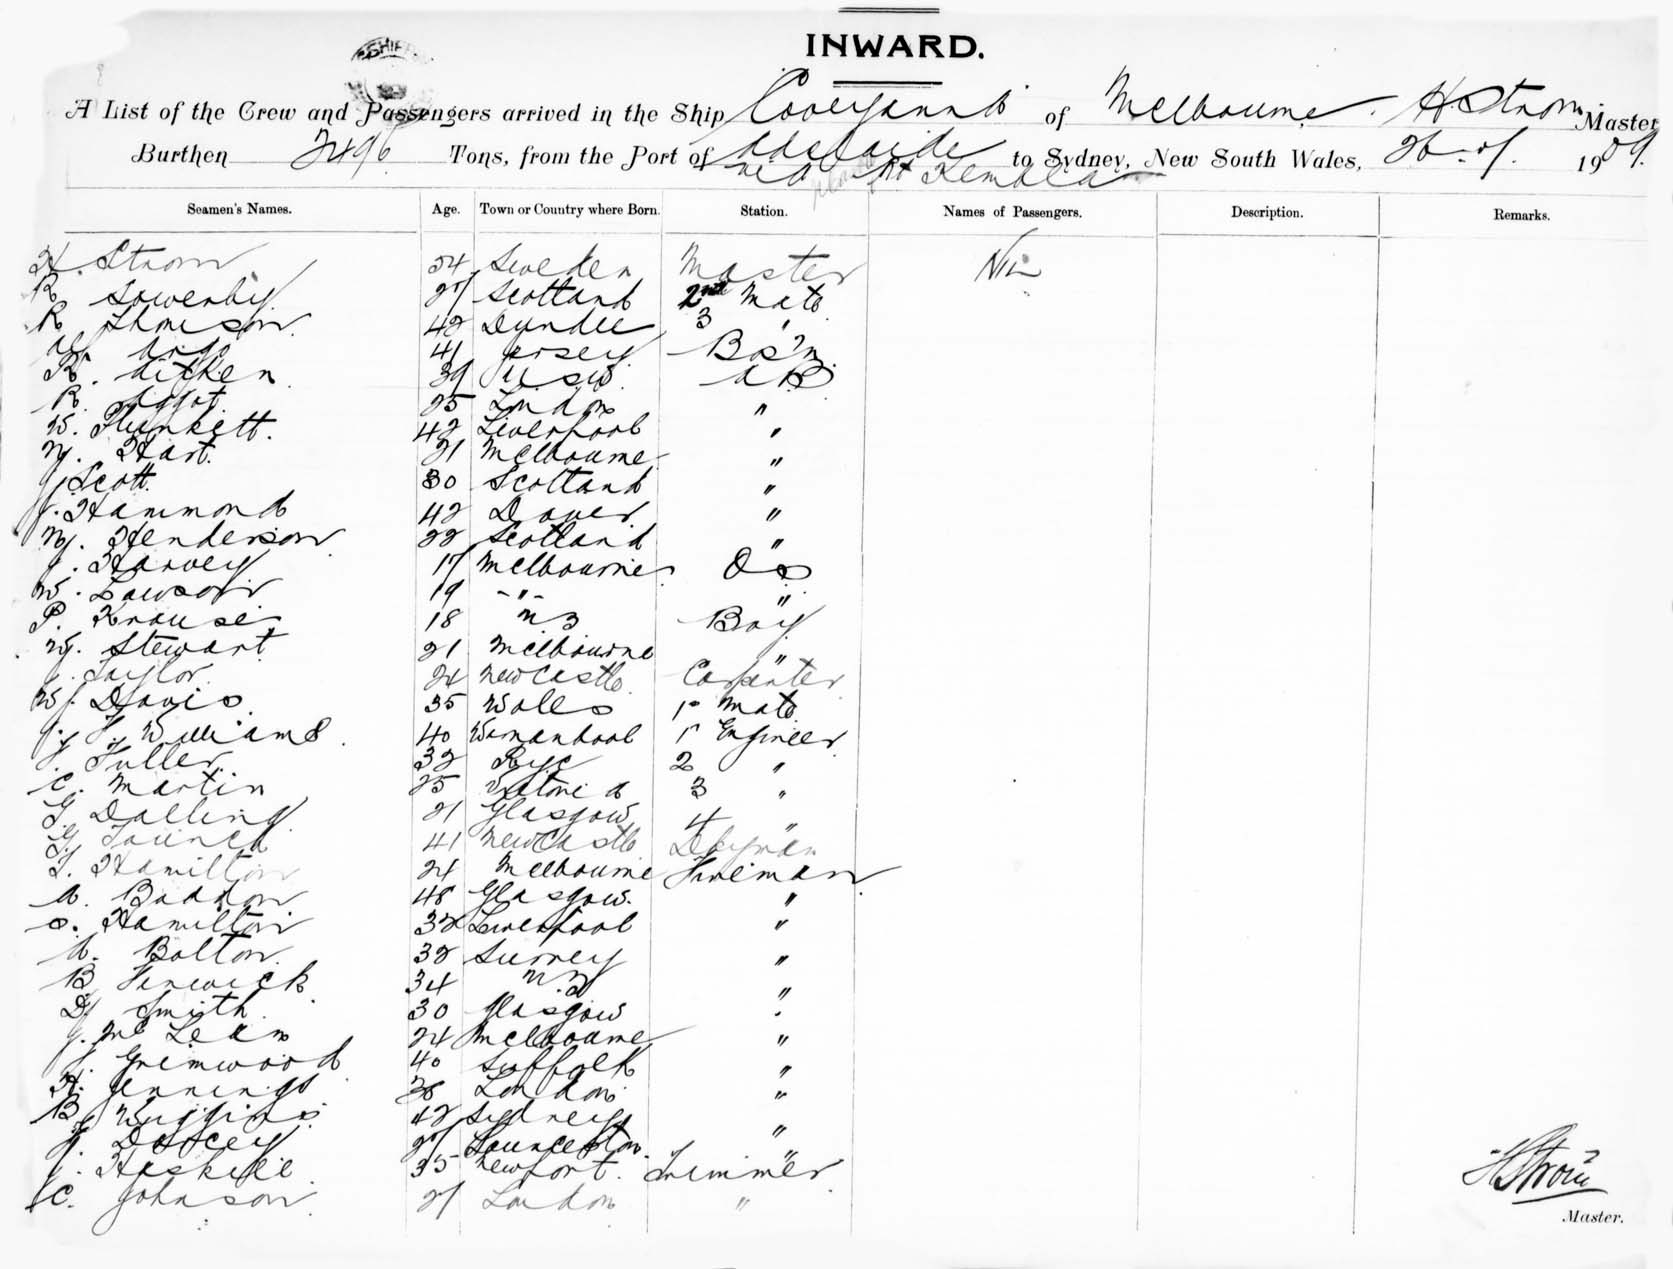 INWARD.
A List of the Crew and Passengers arrived in the Ship Cooeyanna of Melbourne. H Strom Master
Burthen 2496 Tons, from the Port of Adelaide to Sydney, New South Wales, 1909
via Pt Kembla
Seamen's Names. Age. Town or Country where Born. Station. Names of Passengers. Description. Remarks.
H. Strom 54 Sweden Master Nil
R Sowerby 27 Scotland 2nd Mate
R Thomson 42 Dundee 3 "
41 Jersey Bos'n
R. Aitken NSW. AB
R. 25 London "
W. Plunkett. 42 Liverpool "
W. Hart. 21 Melbourne "
J. Scott. 30 Scotland "
J. Hammond 42 Dover "
W. Henderson 22 Scotland "
J. Harvey 17 Melbourne OS
W. Lawson 19 -"- "
P. Krause 18 NZ Boy
W. Stewart 21 Melbourne "
J. Taylor 24 Newcastle Carpenter
W J. Davis. 35 Wales 1st Mate
J. H. Williams. 40 Warnambool 1st Engineer
J. Fuller 32 Rye 2 "
C. Martin 25 3 "
G. Dalling 21 Glasgow 4 "
G. 41 Newcastle Dkyman
T. Hamilton 24 Melbourne Fireman
A. 48 Glasgow. "
S. Hamilton 32 Liverpool "
A. Bolton. 32 Surrey "
B Fenwick 34 N.Z "
D Smith. 30 Glasgow "
J. Mc Lean 24 Melbourne "
J. Grimwood 40 Suffolk "
H. Jennings 38 London "
B Wiggins 42 Sydney
J. 27 Launceston. "
J. Haskell 35 Newport. Trimmer
C. Johnson 21 London "
H Strom
Master.